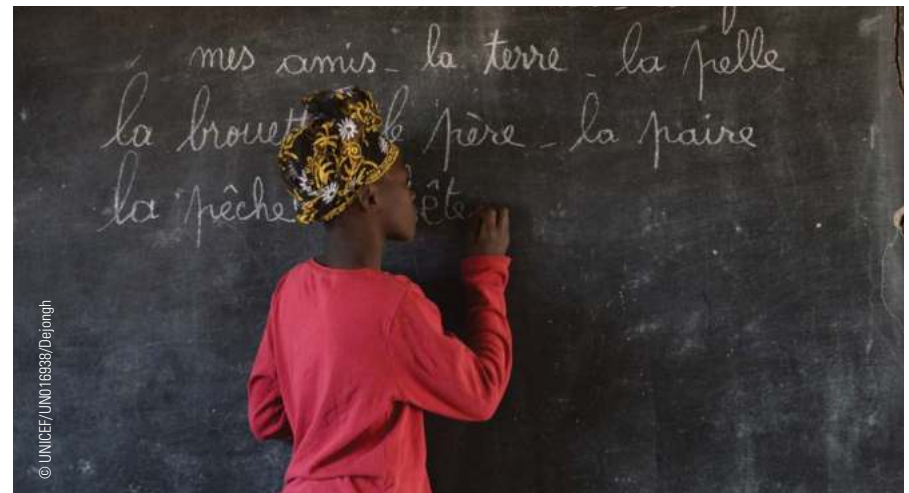 mes amis - la terre - la pelle
la brouett le père - la paire
la pêche ête
© UNICEF/UN016938/Dejongh